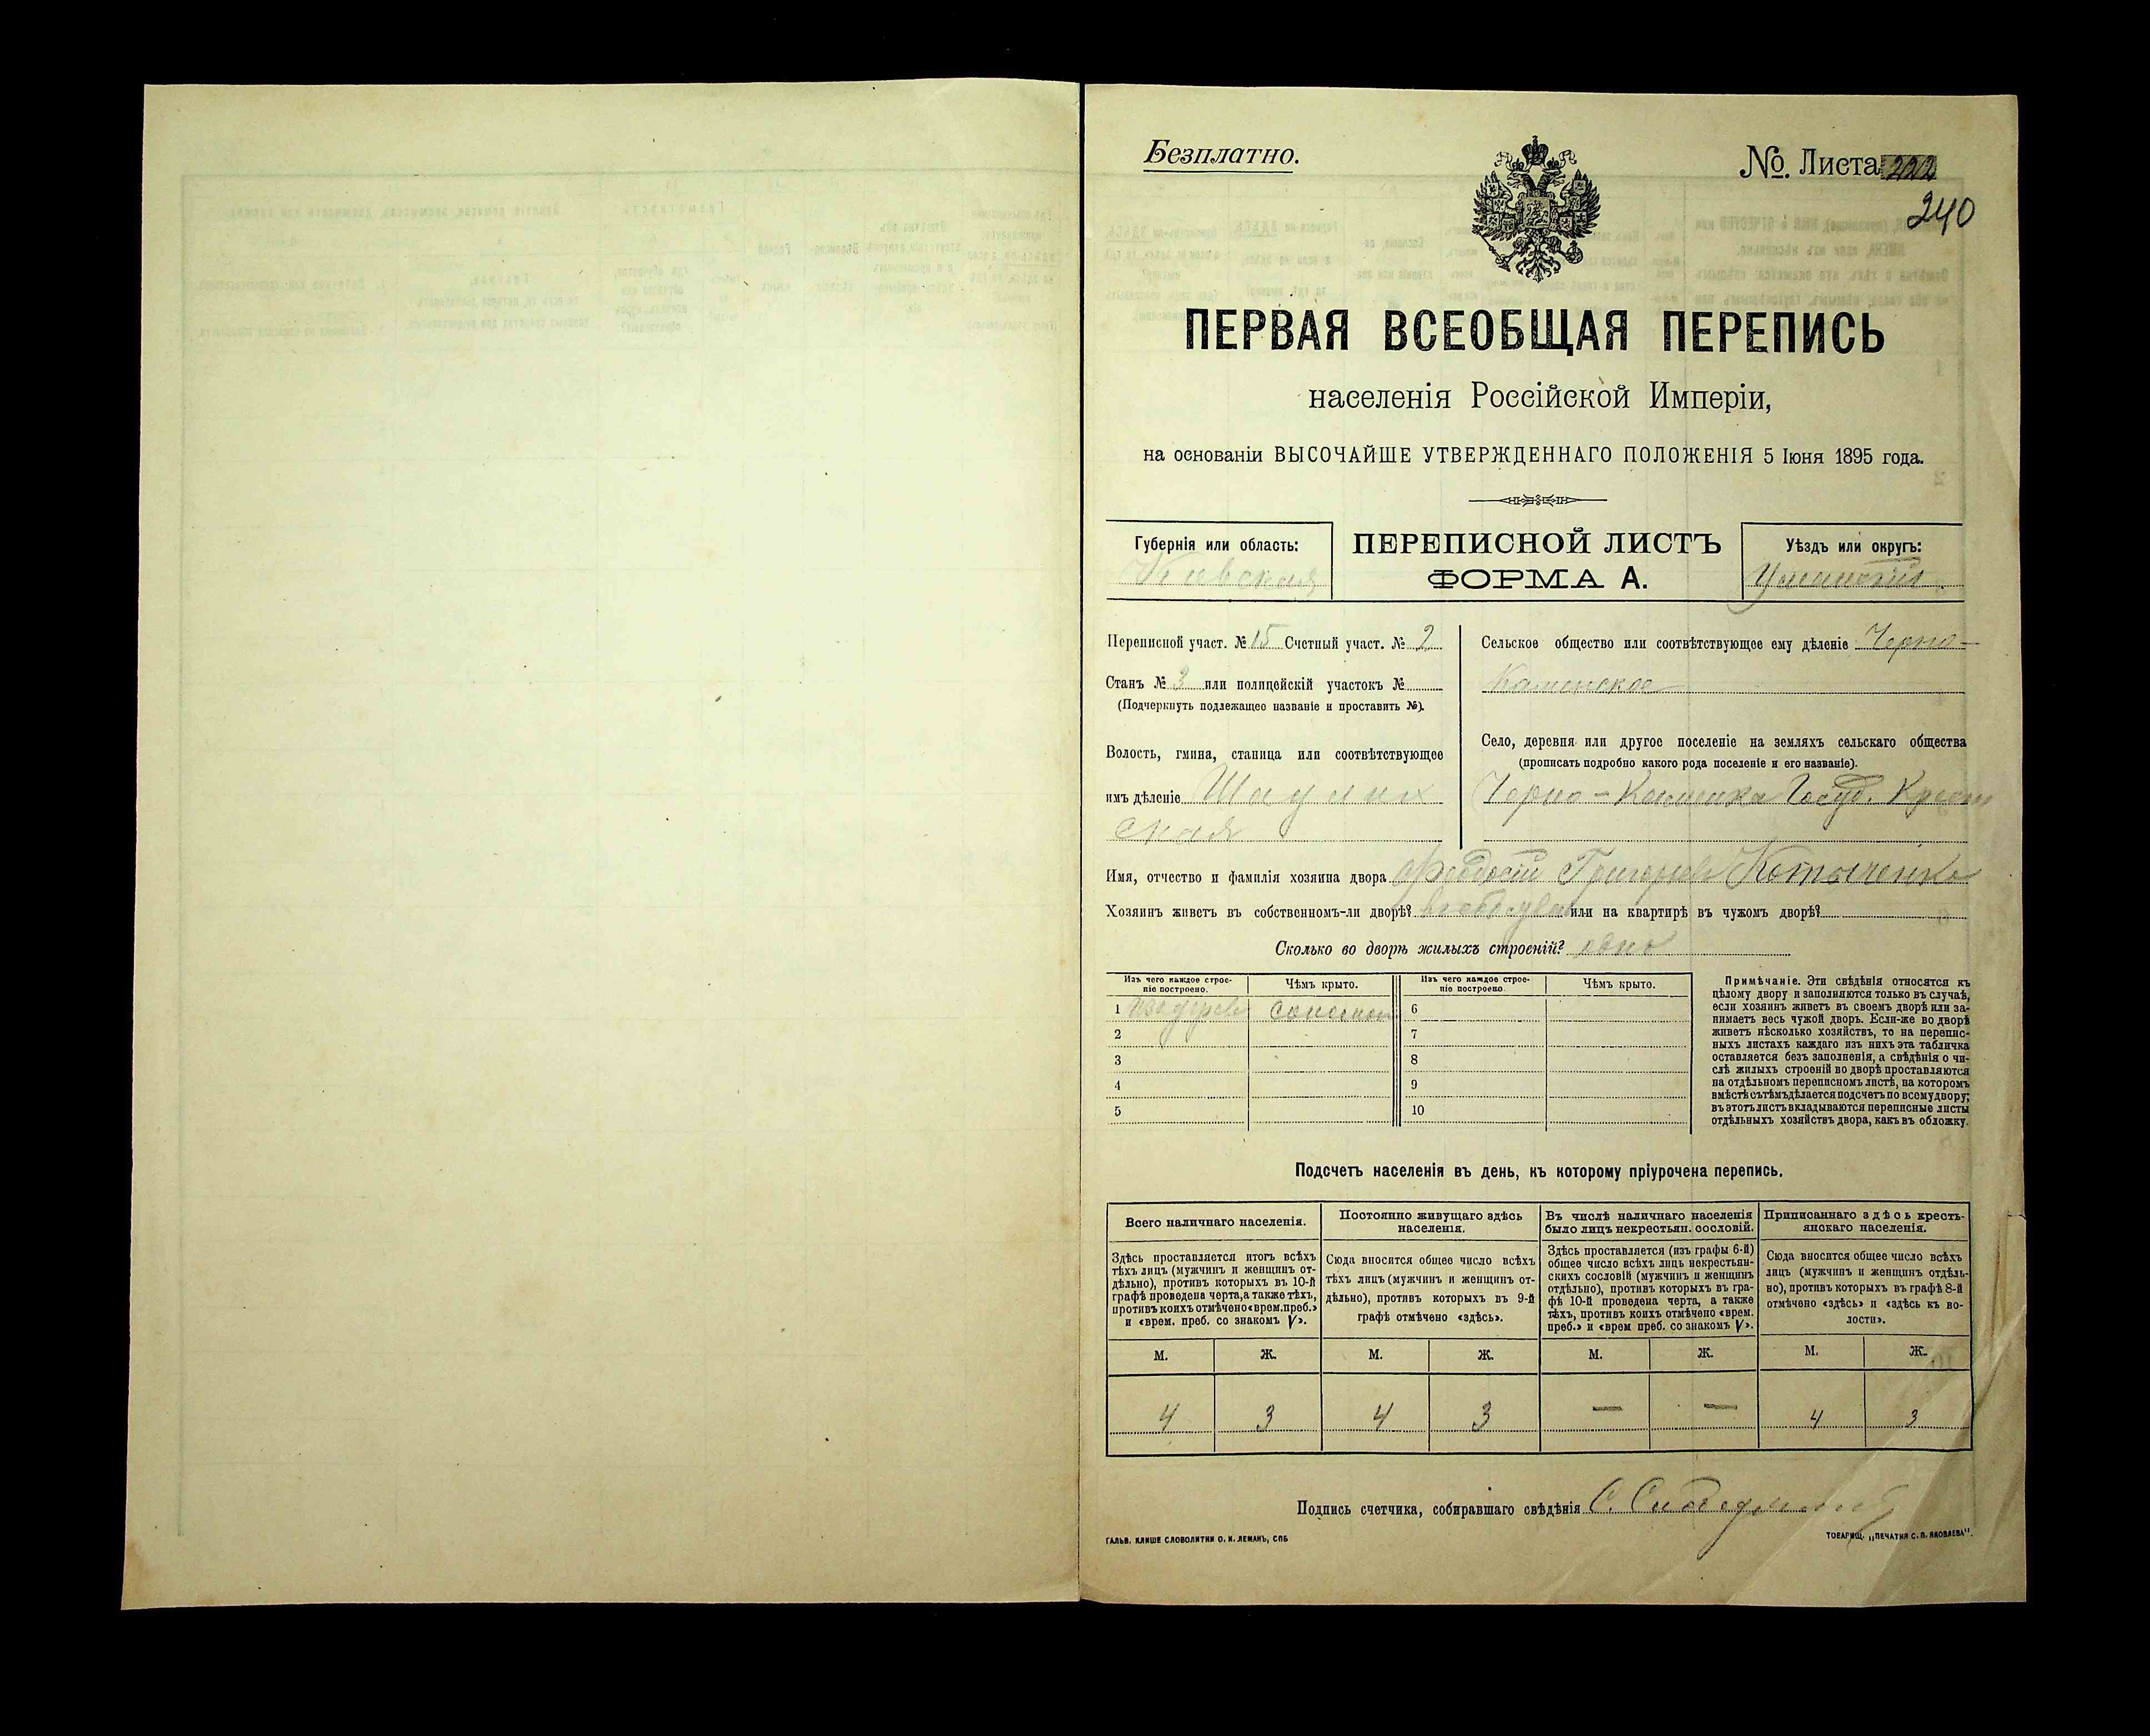 Безплатно.
№. Листа 222
240
ПЕРВАЯ ВСЕОБЩАЯ ПЕРЕПИСЬ
населенія Россійской Имперіи,
на основаніи ВЫСОЧАЙШЕ УТВЕРЖДЕННАГО ПОЛОЖЕНІЯ 5 Іюня 1895 года.
Губернія или область:
Кіевская
ПЕРЕПИСНОЙ ЛИСТЪ
ФОРМА А.
Уѣздъ или округъ:
Уманскій
Переписной участ. № 15 Счетный участ. № 2
Станъ № 3 или полицейскій участокъ №
(Подчеркнуть подлежащее названіе и проставить №).
Волость, гмина, станица или соотвѣтствующее
имъ дѣленіе Шаулих
ская
Сельское общество или соотвѣтствующее ему дѣленіе Черно-
Каменское
Село, деревня или другое поселеніе на земляхъ сельскаго общества
(прописать подробно какого рода поселеніе и его названіе).
Черно-Каменка Госуд. Крест
Имя, отчество и фамилія хозяина двора Феодосій Григорьев Котыченко
Хозяинъ живетъ въ собственномъ-ли дворѣ? или на квартирѣ въ чужомъ дворѣ?
Сколько во дворѣ жилыхъ строеній? одно
Изъ чего каждое строе-
ніе построено.
Чѣмъ крыто.
Изъ чего каждое строе-
ніе построено.
Чѣмъ крыто.
1 изъ дерева соломой 6
2 7
3 8
4 9
5 10
Примѣчаніе. Эти свѣдѣнія относятся къ
цѣлому двору и заполняются только въ случаѣ,
если хозяинъ живетъ въ своемъ дворѣ или за-
нимаетъ весь чужой дворъ. Если-же во дворѣ
живетъ нѣсколько хозяйствъ, то на перепис-
ныхъ листахъ каждаго изъ нихъ эта табличка
оставляется безъ заполненія, а свѣдѣнія о чи-
слѣ жилыхъ строеній во дворѣ проставляются
на отдѣльномъ переписномъ листѣ, на которомъ
вмѣстѣ съ тѣмъ дѣлается подсчетъ по всему двору;
въ этотъ листъ вкладываются переписные листы
отдѣльныхъ хозяйствъ двора, какъ въ обложку.
Подсчетъ населенія въ день, къ которому пріурочена перепись.
Всего наличнаго населенія.
Здѣсь проставляется итогъ всѣхъ
тѣхъ лицъ (мужчинъ и женщинъ от-
дѣльно), противъ которыхъ въ 10-й
графѣ проведена черта, а также тѣхъ,
противъ коихъ отмѣчено «врем. преб.»
и «врем. преб. со знакомъ V».
Постоянно живущаго здѣсь
населенія.
Сюда вносится общее число всѣхъ
тѣхъ лицъ (мужчинъ и женщинъ от-
дѣльно), противъ которыхъ въ 9-й
графѣ отмѣчено «здѣсь».
Въ числѣ наличнаго населенія
было лицъ некрестьян. сословій.
Здѣсь проставляется (изъ графы 6-й)
общее число всѣхъ лицъ некрестьян-
скихъ сословій (мужчинъ и женщинъ
отдѣльно), противъ которыхъ въ гра-
фѣ 10-й проведена черта, а также
тѣхъ, противъ коихъ отмѣчено «врем.
преб.» и «врем преб. со знакомъ V».
Приписаннаго здѣсь кресть-
янскаго населенія.
Сюда вносится общее число всѣхъ
лицъ (мужчинъ и женщинъ отдѣль-
но), противъ которыхъ въ графѣ 8-й
отмѣчено «здѣсь» и «здѣсь къ во-
лости».
М. Ж. М. Ж. М. Ж. М. Ж.
4 3 4 3 — — 4 3
Подпись счетчика, собиравшаго свѣдѣнія
ГАЛЬВ. КЛИШЕ СЛОВОЛИТНИ О. И. ЛЕМАНЪ, СПБ
ТОВАРИЩ. „ПЕЧАТНЯ С. П. ЯКОВЛЕВА".